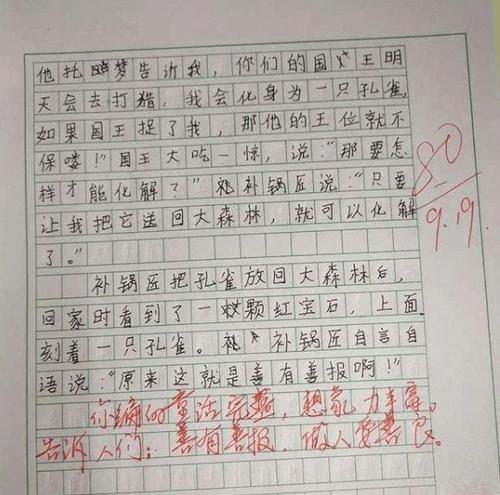 他托梦告诉我，你们的国王明
天会去打猎，我会化身为一只孔雀，
如果国王捉了我，那他的王位就不
保喽！"国王大吃一惊，说："那要怎
样才能化解了？"补锅匠说："只要
让我把它送回大森林，就可以化解
了。"
补锅匠把孔雀放回大森林后，
回家时看到了一颗红宝石，上面
刻着一只孔雀。补锅匠自言自
语说："原来这就是善有善报啊！"
80
9.19
你编的童话完整，想象力丰富。
告诉人们：善有善报，做人要善良。